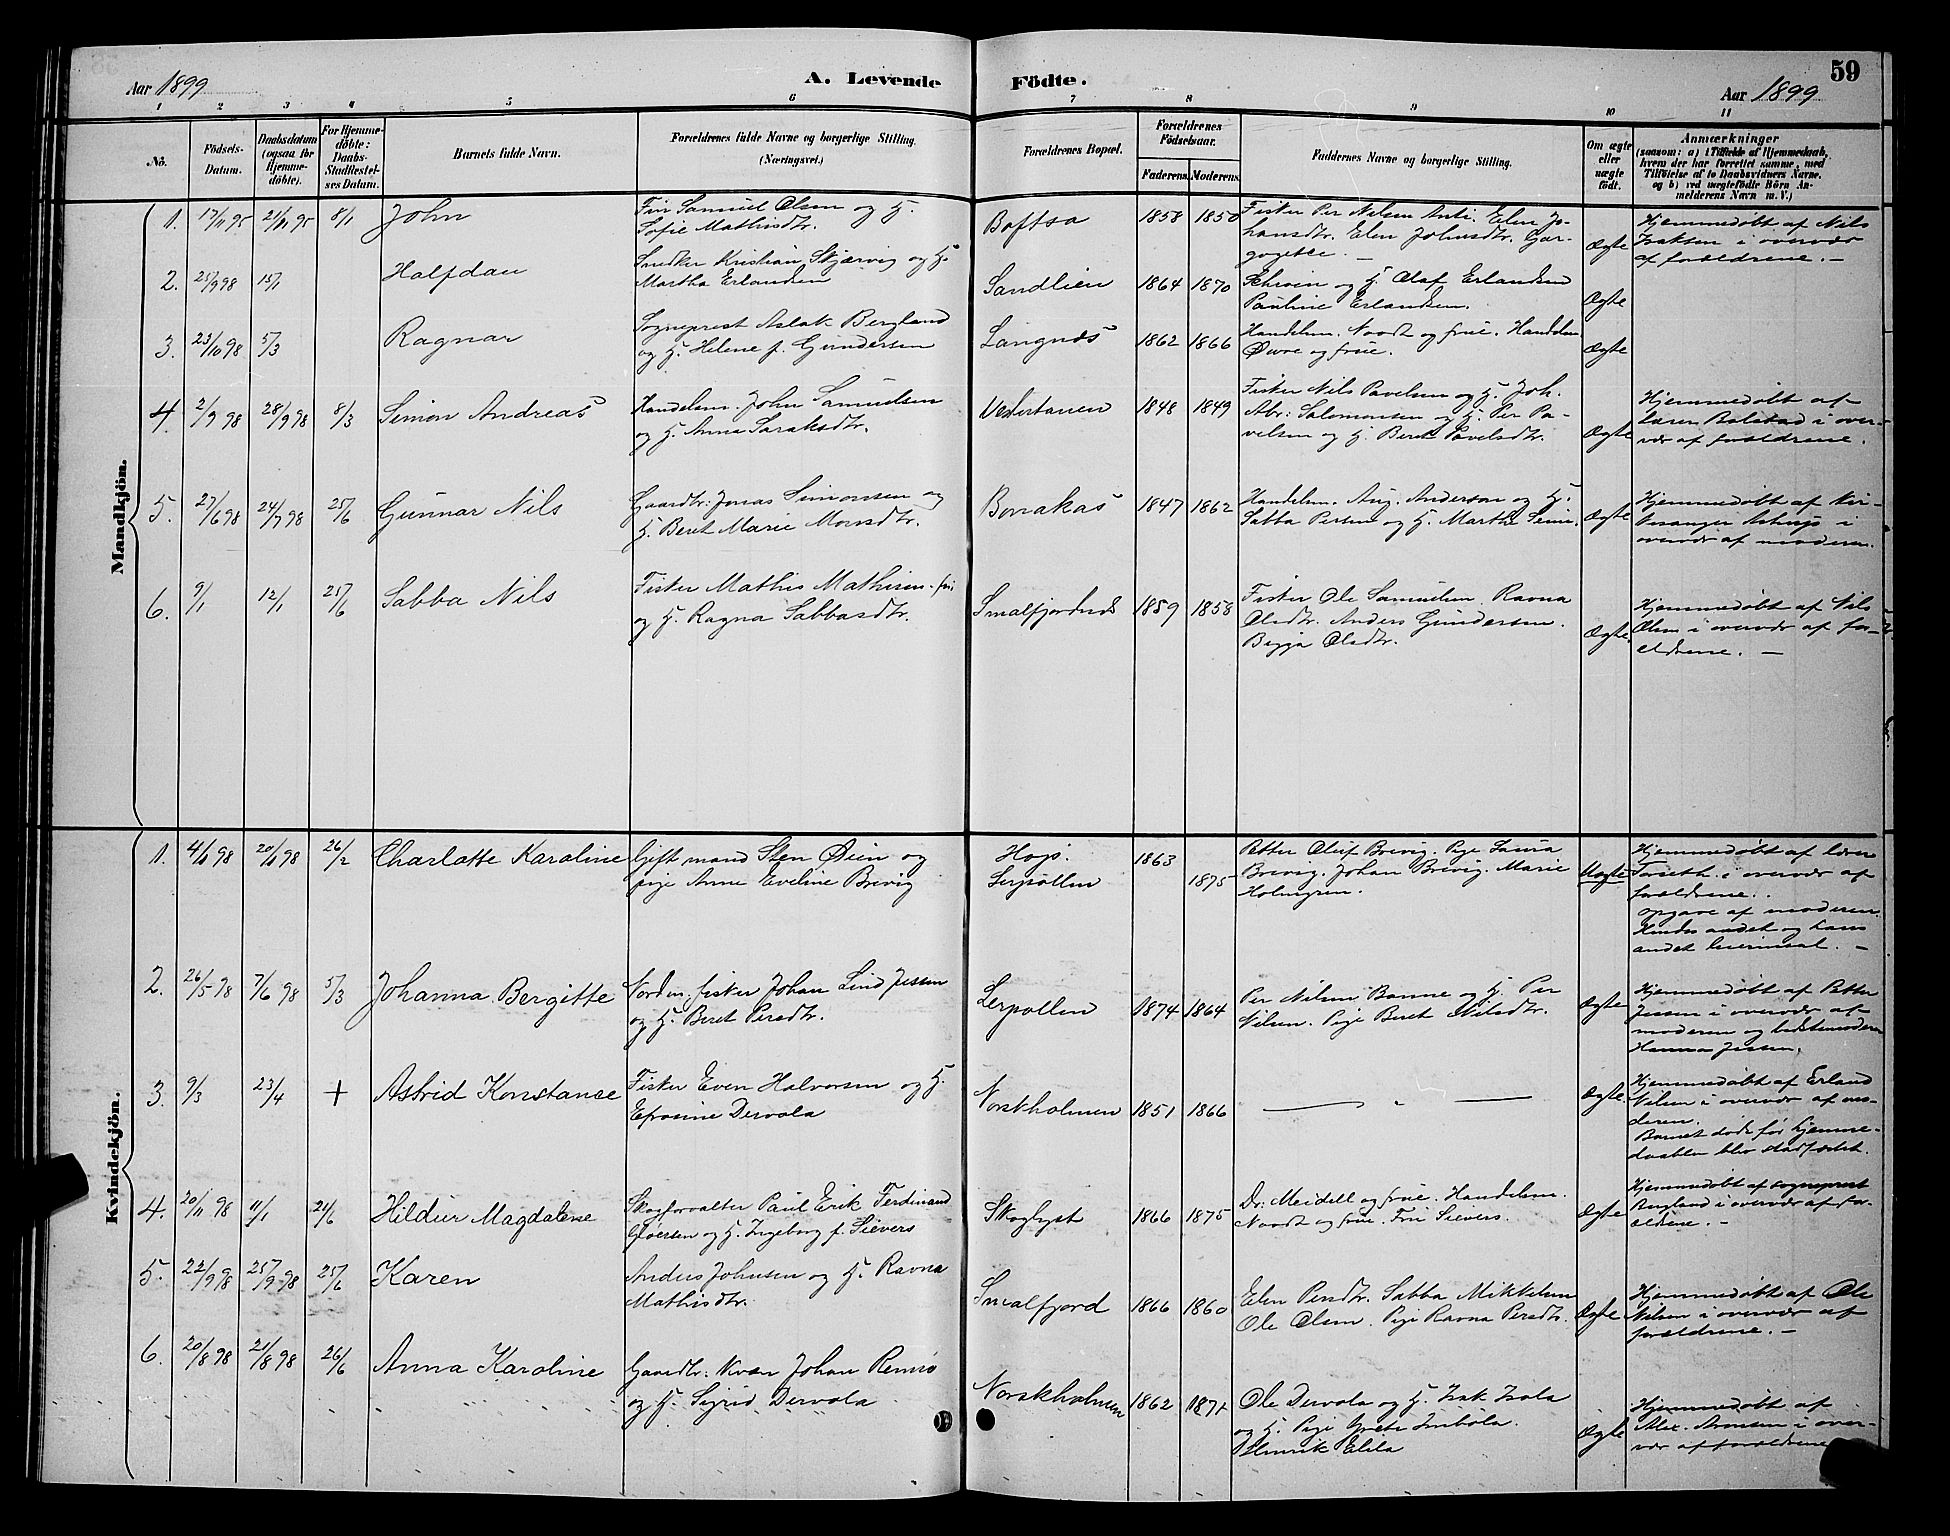 Aar 1899
A. Levende
Födte.
Aar 1899
59
1 2 3 4 5 6 7 8 9 10 11
No.
Födsels-
Datum.
Daabsdatum
(ogsaa for
Hjemme-
döbte).
For Hjemme-
döbte:
Daabs-
Stadfæstel-
ses Datum.
Barnets fulde Navn.
Forældrenes fulde Navne og borgerlige Stilling.
(Næringsvei.)
Forældrenes Bopæl.
Forældrenes
Födselsaar.
Faderens. Moderens.
Faddernes Navne og borgerlige Stilling.
Om ægte
eller
uægte
födt.
Anmærkninger
(saasom: a) i Tilfælde af Hjemmedaab,
hvem der har forrettet samme, med
Tilföielse af to Daabsvidners Navne.
og b) ved uægtefödte Börn An-
melderens Navn m. V.)
Mandkjön.
1. 17/11 95 21/11 95 8/1 John
Fin Samuel Olsen og H.
Sofie Mathisdtr.
Boftsa 1858 1850
Fisker Per Nilsen Anti. Elen Jo-
hansdtr. Elen Johnsdtr. Gar-
gogette. —
Ægte
Hjemmedøbt af Nils
Isaksen i overvær
af forældrene. —
2. 25/9 98 15/1 Halfdan
Snedker Kristian Skjærvig og H.
Martha Erlandsen
Sandlien 1864 1870
og H. Olaf Erlandsen
Pauline Erlandsen.
Ægte
3. 23/10 98 5/3 Ragnar
Sogneprest Aslak Bergland
og H. Helene f. Gundersen
Langnæs 1862 1866
Handelsm. Noodt og frue. Handelsm
Øwre og frue.
Ægte
4. 2/9 98 28/9 98 8/3 Simon Andreas
Handelsm. John Samuelsen
og H. Anna Saraksdtr.
Vestertanen 1848 1849
Fisker Nils Pavelsen og H. Joh.
Abr: Salomonsen og H. Per Pa-
velsen og H. Beret Pavelsdtr.
Ægte
Hjemmedøbt af
lærer Bolstad i over-
vær af forældrene.
5. 27/6 98 24/7 98 25/6 Gunnar Nils
Gaardbr: Jonas Simonsen og
H. Beret Marie Monsdtr.
Bonakas 1847 1862
Handelsm. Aug. Anderson og H.
Sabba Persen og H. Marthe Simo.
Ægte
Hjemmedøbt af Kir-
kesanger Astrup i
overvær af moderen.
6. 9/1 12/1 25/6 Sabba Nils
Fisker Mathis Mathisen - fin
og H. Ragna Sabbasdtr.
Smalfjordnæs 1859 1858
Fisker Ole Samuelsen. Ravna
Olsdtr. Anders Gundersen.
Bigga Olsdtr.
Ægte.
Hjemmedøbt af Nils
Olsen i overvær af for-
ældrene. —
Kvindekjön.
1. 4/11 98 20/11 98 26/2 Charlotte Karoline
Gift mand Sten Øien og
pige Anne Eveline Brevig
Hops.
Lerpollen 1863 1875
Petter Oluf Brevig. Pige Laura
Brevig. Johan Brevig. Marie
Holmgren.
Uægte
Hjemmedøbt af lærer
Forseth i overvær af
forældrene.
opgave af moderen.
Hendes andet og hans
andet leiermaal. —
2. 26/5 98 7/6 98 5/3 Johanna Bergitte
Nordm, fisker Johan Lind Jessen
og H. Beret Persdtr.
Lerpollen 1874 1864
Per Nilsen Banne og H. Per
Nilsen. Pige Beret Nilsdtr.
Ægte
Hjemmedøbt af Petter
Jessen i overvær af
moderen og bedstemoderen
Hanna Jessen.
3. 9/3 23/4 + Astrid Konstanse
Fisker Even Halvorsen og H.
Efrosine Dervola
Norskholmen 1851 1866
— " —
Ægte.
Hjemmedøbt af Erland
Nilsen i overvær af mo-
deren.
Barnet døde før hjemme-
daaben blev stadfæstet.
4. 20/11 98 11/1 24/6 Hildur Magdalene
Skogforvalter Paul Erik Ferdinand
Gløersen og H. Ingeborg f. Sievers
Skoglyst 1866 1875
Dr: Meidell og frue. Handelsm.
Noodt og frue. Fru Sievers.
Ægte
Hjemmedøbt af sogneprest
Bergland i overvær af for-
ældrene. —
5. 22/9 98 25/9 98 25/6 Karen
Anders Johnsen og H. Ravna
Mathisdtr.
Smalfjord 1866 1860
Elen Persdtr. Sabba Mikkelsen
Ole Olsen. Pige Ravna Persdtr.
Ægte
Hjemmedøbt af Ole
Nilsen i overvær af
forældrene. —
6. 20/8 98 21/8 98 26/6 Anna Karoline
Gaardbr: Kvæn Johan Remsö
og H. Sigrid Dervola
Norskholmen 1862 1871
Ole Dervola og H. Isak Isola
og H. Pige Grete Imbola.
Henrik Elila
Ægte
Hjemmedøbt af
Alex. Aronsen i over-
vær af forældrene